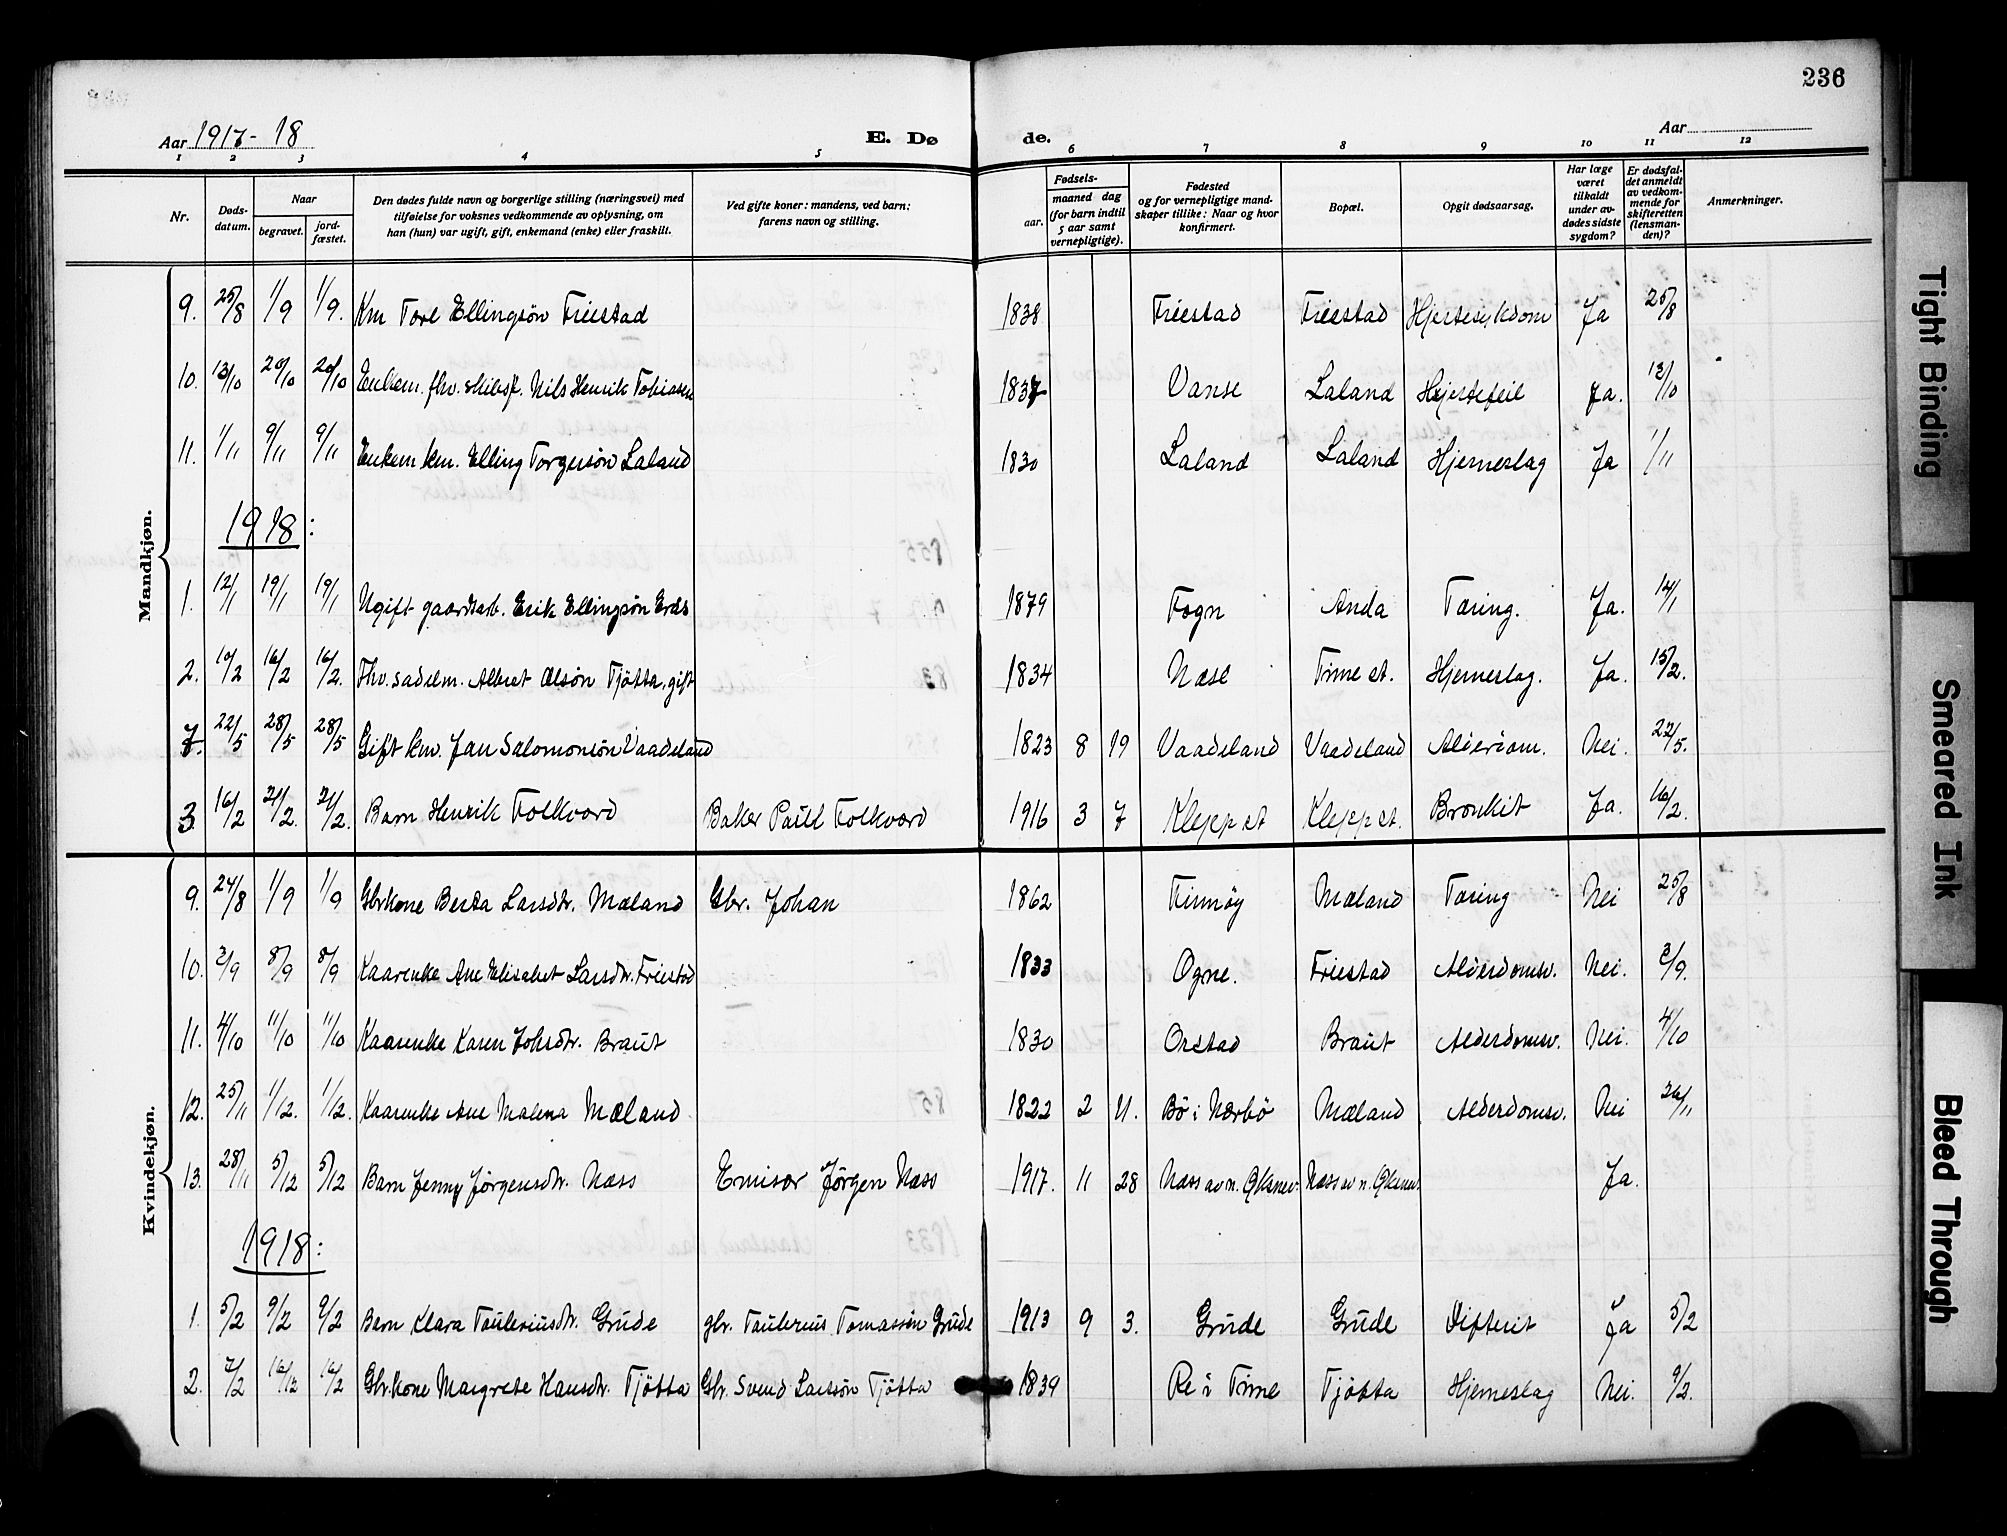 236
Aar 1917-18 E. Døde. Aar
1 2 3 4 5 6 7 8 9 10 11 12
Nr. Døds-datum. Naar begravet. jord-fæstet. Den dødes fulde navn og borgerlige stilling (næringsvei) med tilføielse for voksnes vedkommende av oplysning, om han (hun) var ugift, gift, enkemand (enke) eller fraskilt. Ved gifte koner: mandens, ved barn: farens navn og stilling. Fødsels- aar. maaned dag (for barn indtil 5 aar samt vernepligtige). Fødested og for vernepligtige mand-skaper tillike: Naar og hvor konfirmert. Bopæl. Opgit dødsaarsag. Har læge været tilkaldt under av-dødes sidste sygdom? Er dødsfal-det anmeldt av vedkom-mende for skifteretten (lensman-den)? Anmerkninger.
Mandkjøn.
9. 25/8 1/9 1/9. Km Tore Ellingsön Friestad 1838 Friestad Friestad Hjertesykdom Ja 25/8
10. 13/10 20/10 20/10 Enkem. fhv. skibsf. Nils Henrik Tobiasen 1837 Vanse Laland Hjertefeil Ja. 13/10
11. 1/11 9/11 9/11 Enkem km. Elling Torgersön Laland 1830 Laland Laland Hjerneslag Ja 1/11
1918:
1. 12/1 19/1 19/1 Ugift gaardsarb. Erik Ellingsön Eräs 1879 Fogn Anda Tæring. Ja. 14/1
2. 10/2 16/2 16/2. Fhv. sadelm. Albret Olsön Tjötta, gift 1834 Næse Time st. Hjerneslag. Ja. 15/2.
7. 22/5 28/5 28/5 Gift km. Jan Salomonsön Vaadeland 1823 8 19 Vaadeland Vaadeland Alderdom. Nei. 22/5.
3 16/2 21/2. 21/2. Barn Henrik Folkvord Baker Paul Folkvord 1916 3 7 Klepp st Klepp st. Bronkit Ja. 16/2.
Kvindekjøn.
9. 24/8 1/9 1/9 Gbrkone Berta Larsdtr. Mæland Gbr. Johan 1862 Finnöy Mæland Tæring Nei 25/8
10. 2/9 8/9 8/9 Kaarenke Ane Elisabet Larsdtr. Friestad 1833 Ogne. Friestad Alderdomsv. Nei. 3/9.
11. 4/10 11/10 11/10 Kaarenke Karen Johsdtr. Braut 1830 Orstad Braut Alderdomsv. Nei. 4/10
12. 25/11 1/12. 1/12. Kaarenke Ane Malena Mæland 1822 2 11. Bö i Nærbö Mæland Alderdomsv. Nei 26/11
13. 28/11 5/12 5/12 Barn Jenny Jørgensdtr. Næss Emisær Jørgen Næss 1917. 11 28 Næss av n. Øksnev. Næss av n. Øksnev. Ja.
1918:
1. 5/2 9/2 9/2 Barn Klara Tauleriusdtr. Grude gbr. Taulerius Tomassön Grude 1913 9 3. Grude Grude Difterit Ja 5/2
2. 7/2 16/2 16/2 Gbrkone Margrete Hansdtr. Tjötta Gbr. Svend Larssön Tjötta 1839 Re i Time Tjötta Hjerneslag Nei. 9/2.
Tight Binding
Smeared Ink
Bleed Through